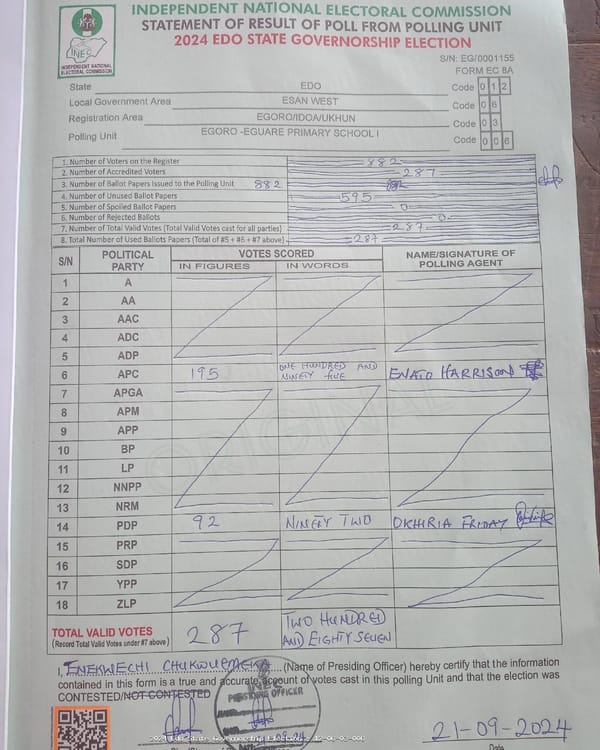 INDEPENDENT NATIONAL ELECTORAL COMMISSION
STATEMENT OF RESULT OF POLL FROM POLLING UNIT
2024 EDO STATE GOVERNORSHIP ELECTION
INEC
INDEPENDENT NATIONAL
ELECTORAL COMMISSION
S/N: EG/0001155
FORM EC 8A
State EDO Code 0 1 2
Local Government Area ESAN WEST Code 0 6
Registration Area EGORO/IDOA/UKHUN Code 0 3
Polling Unit EGORO -EGUARE PRIMARY SCHOOL I Code 0 0 6
1. Number of Voters on the Register 882
2. Number of Accredited Voters 287
3. Number of Ballot Papers Issued to the Polling Unit 882
4. Number of Unused Ballot Papers 595
5. Number of Spoiled Ballot Papers 0
6. Number of Rejected Ballots 0
7. Number of Total Valid Votes (Total Valid Votes cast for all parties) 287
8. Total Number of Used Ballots Papers (Total of #5 + #6 + #7 above) 287
S/N POLITICAL PARTY VOTES SCORED NAME/SIGNATURE OF POLLING AGENT
IN FIGURES IN WORDS
1 A
2 AA
3 AAC
4 ADC
5 ADP
6 APC 195 ONE HUNDRED AND NINETY FIVE ENATO HARRISON
7 APGA
8 APM
9 APP
10 BP
11 LP
12 NNPP
13 NRM
14 PDP 92 NINETY TWO OKHIRIA FRIDAY
15 PRP
16 SDP
17 YPP
18 ZLP
TOTAL VALID VOTES 287 TWO HUNDRED AND EIGHTY SEVEN
(Record Total Valid Votes under #7 above)
I, ENEKWECHI CHUKWUEMEKA (Name of Presiding Officer) hereby certify that the information
contained in this form is a true and accurate account of votes cast in this polling Unit and that the election was
CONTESTED/NOT CONTESTED
INEC
PRESIDING OFFICER
21-09-2024
Date
ORIGINAL